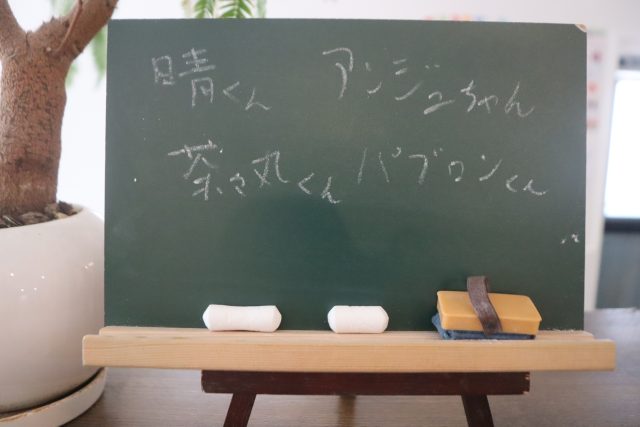 晴くん アンジュちゃん
茶々丸くん パブロンくん